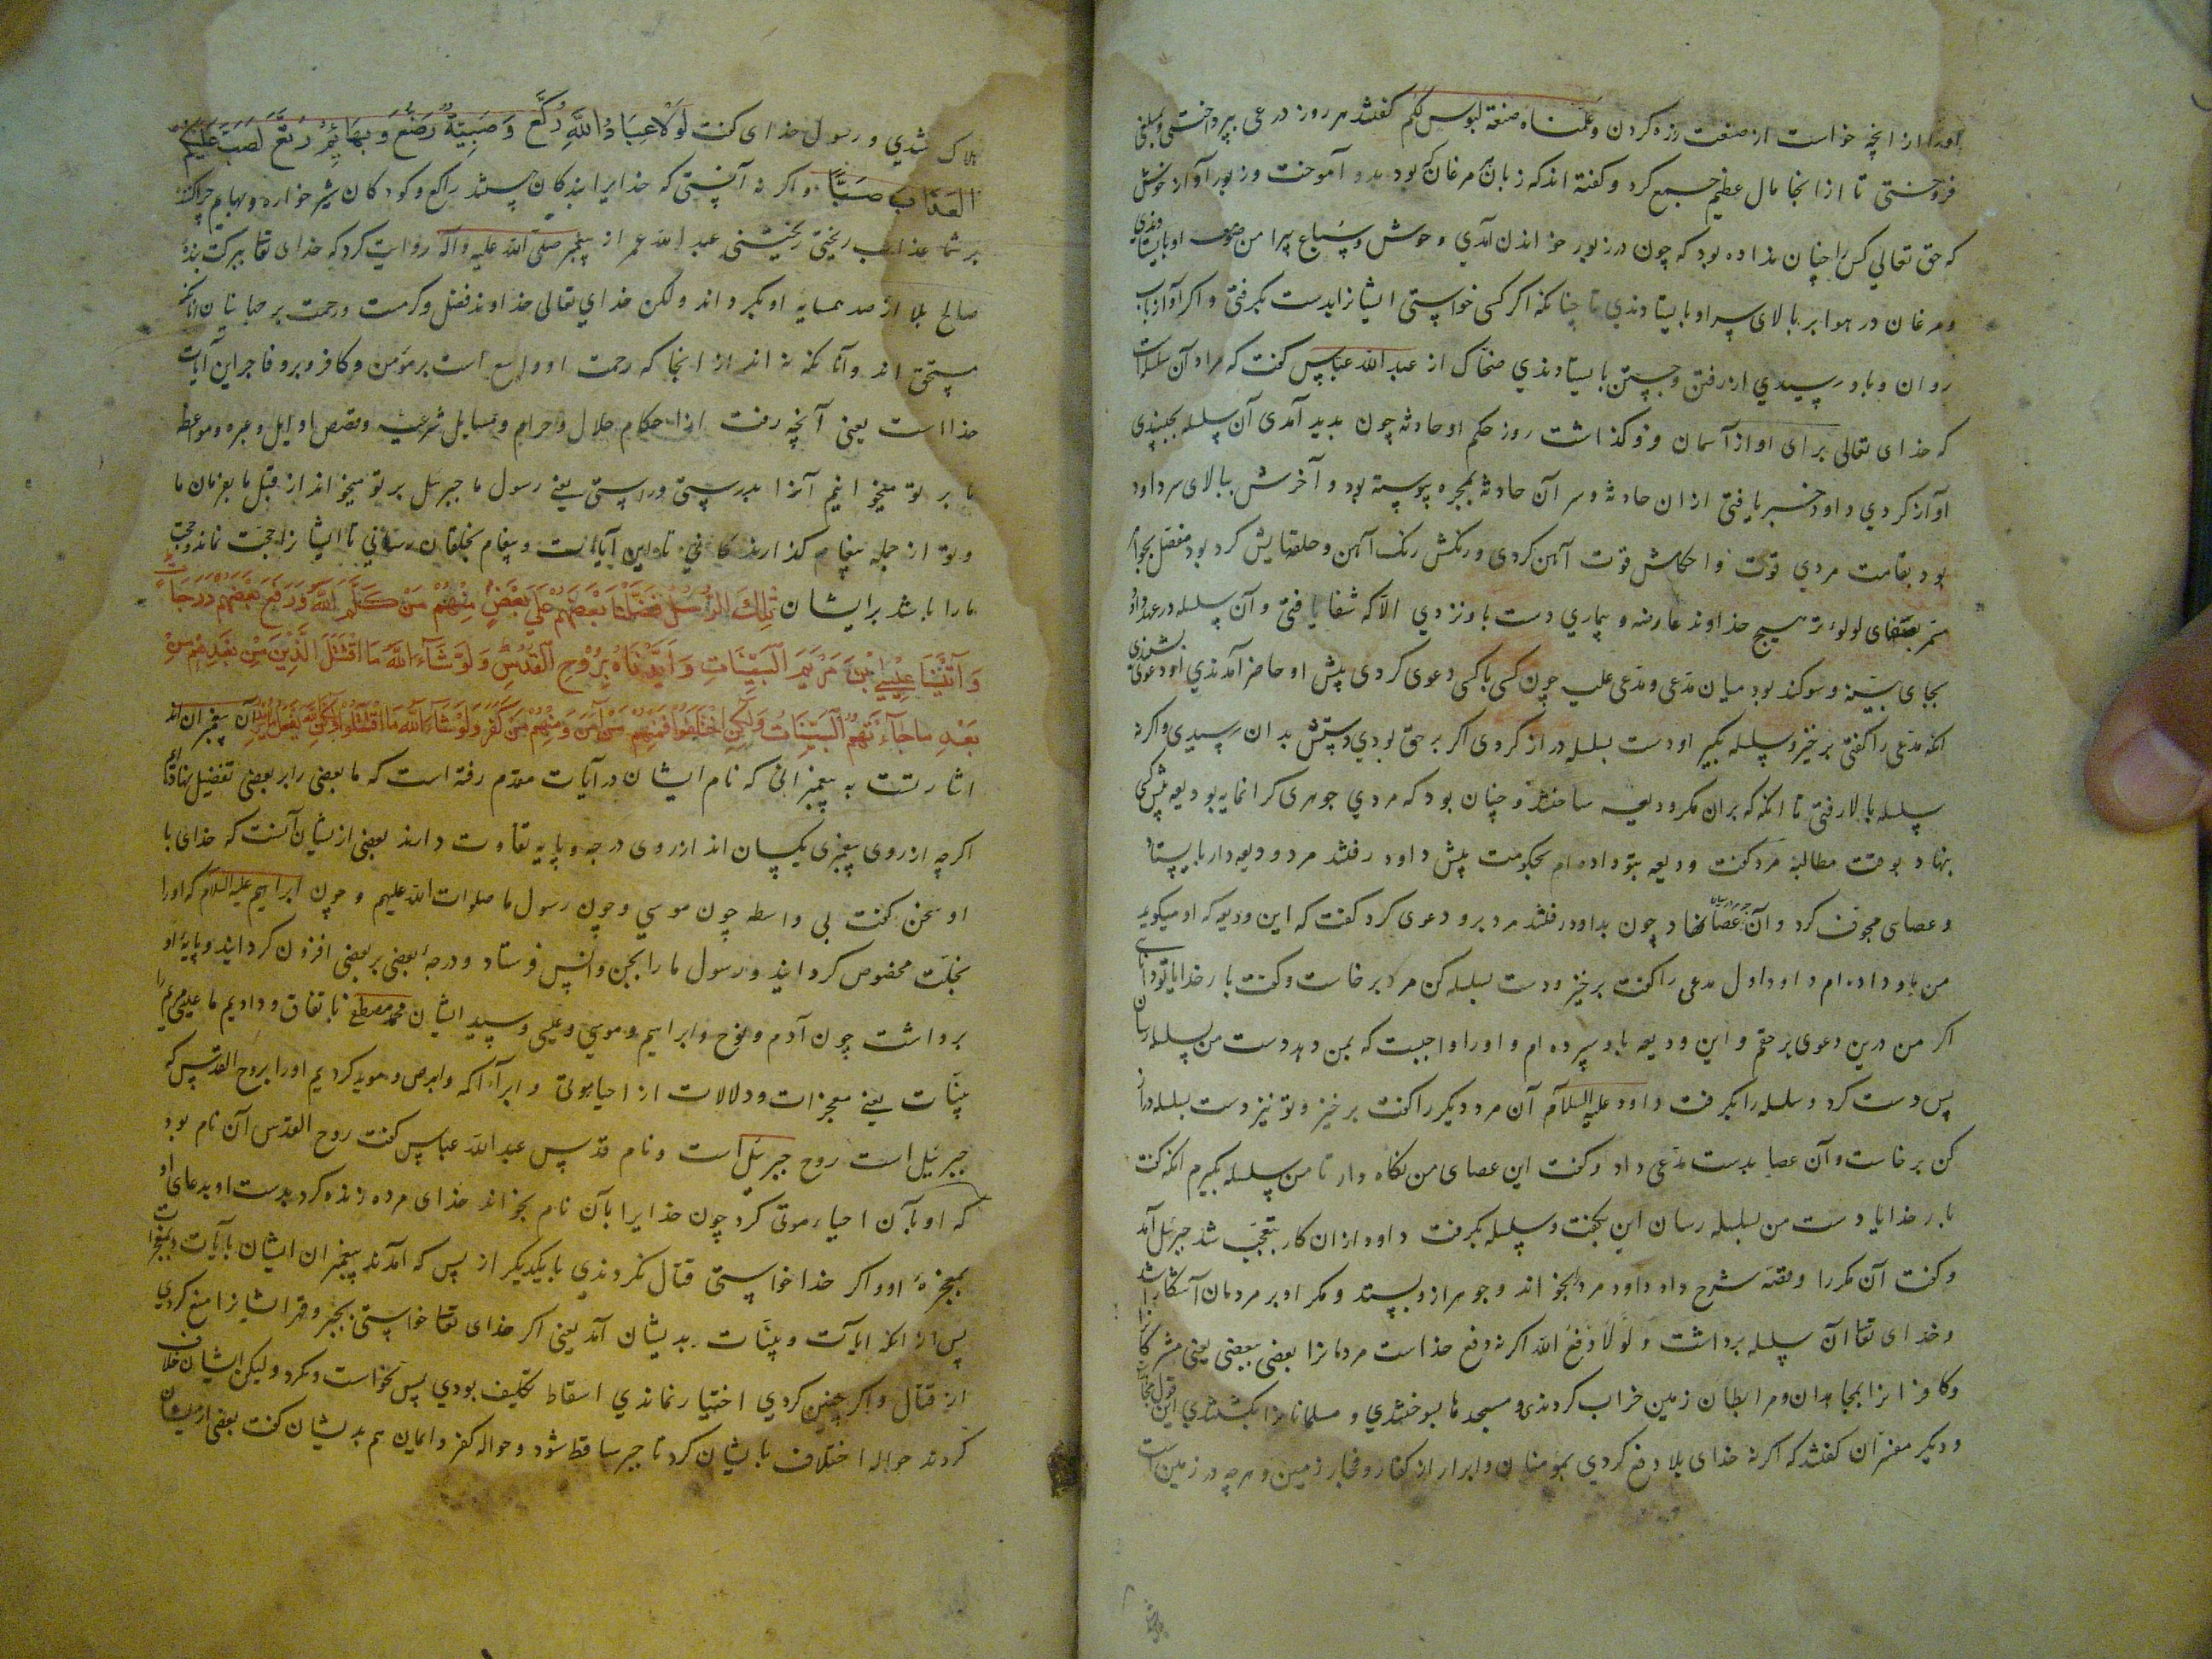 اورا از انچه خواست از صنعت زره کردن و علمناه صنعة لبوس لکم کفتند هر روز درعی بپرداختی و بمبلغی
فروختی تا از انجا مال عظیم جمع کرد و کفته اند که زبان مرغان بود بدو آموخت و زبور آواز خوش
که حق تعالی کس را چنان نداده بود که چون در زبور خواندن آمدی وحوش و سباع پیرامن صومعه او بایستادندی
و مرغان در هوا بر بالای سر او بایستادندی تا چنانکه اکر کسی خواستی ایشانرا بدست بکرفتی و اکر آواز باب
روان و باد رسیدی از رفتن و جستن بایستادندی ضحاک از عبد الله عباس کفت که مراد آن سلسله است
که خدای تعالی برای او از آسمان فرو کذاشت روز حکم او حادثه چون بدید آمدی آن سلسله بجنبیدی
آواز کردی داود خبر یافتی از ان حادثه و سر آن حادثه بمجره پیوسته بود و آخرش ببالای سر داود
بود بقامت مردی قوت و احکامش قوت آهن کردی و رنکش رنک آهن و حلقهایش کرد بود مفصل بجواهر
بقضای لولوء تر هیچ خداوند عارضه و بیماری دست باو نزدی الا که شفا یافتی و آن سلسله در عهد داود
بجای بینه و سوکند بود میان مدعی و مدعی علیه چون کسی باکسی دعوی کردی پیش او حاضر آمدندی او دعوی بشنیدی
انکه مدعی را کفتی بر خیز و سلسله بکیر او دست بسلسله دراز کردی اکر بر حق بودی دستش بدان رسیدی و اکر نه
سلسله بالا رفتی تا انکه که بران مکر و دیعه ساختند و چنان بود که مردی جوهری کرانمایه بودیعه پیش کسی
بنهاد بوقت مطالبه مرد کفت ودیعه بتو داده ام بحکومت پیش داود رفتند مرد ودیعه دار بایستاد
و عصای مجوف کرد و آن جوهر در میان عصا نهاد چون بداود رفتند مرد برو دعوی کرد کفت که این ودیعه که او میکوید
من باو داده ام داود اول مدعی را کفت بر خیز و دست بسلسله کن مرد برخاست و کفت بار خدایا تو دانای
اکر من درین دعوی بر حقم و این ودیعه باو سپرده ام و اورا واجبست که بمن دهد دست من بسلسله رسان
پس دست کرد و سلسله را بکرفت داود علیه السلام آن مرد دیکر را کفت بر خیز و تو نیز دست بسلسله دراز
کن برخاست و آن عصا بدست مدعی داد و کفت این عصای من نکاه دار تا من سلسله بکیرم انکه کفت
بار خدایا دست من بسلسله رسان این بکفت و سلسله بکرفت داود ازان کار بتعجب شد جبرئیل آمد
و کفت آن مکر را و قصه شرح داد داود مرد بخواند و جوهر ازو بستد و مکر او بر مردمان آشکارا شد
و خدای تعا آن سلسله برداشت و لولا دفع الله اکر نه دفع خداست مردمانرا بعضی ببعضی یعنی مشرکا
و کافرانرا بمجاهدان و مرابطان زمین خراب کردندی و مسجدها بسوختندی و مسلمانانرا بکشتندی این قول مجاهد
و دیکر مفسران کفتند که اکر نه خدای بلا دفع کردی بمومنان و ابرار از کفار و فجار زمین و هرچه در زمین است
هلاک شدی و رسول خدای کفت لَوْلَا عِبَادُ اللَّهِ رُكَّعٌ وَصِبْيَةٌ رُضَّعٌ وَبَهَائِمُ رُتَّعٌ لَصُبَّ عَلَيْكُمْ
الْعَذَابُ صَبًّا و اکر نه آنستی که خدایرا بندکان هستند راکع و کودکان شیر خواره و بهایم چراکننده
بر شما عذاب ریختی ریختنی عبد الله عمر از پیغمبر صلی الله علیه وآله روایت کرد که خدای تعا ببرکت بنده
صالح بلا از صد همسایه او بکرداند ولکن خدای تعالی خداوند فضل و کرمست و رحمت بر جهانیان آنانکه
مستحق اند و آنانکه نه اند از انجا که رحمت او واسع است بر مؤمن و کافر و بر و فاجر این آیات
خدا است یعنی آنچه رفت از احکام حلال و حرام و مسایل شرعیه و قصص اوایل و عبره و مواعظ
ما بر تو میخوانیم آنرا بدرستی و راستی یعنی رسول ما جبرئیل بر تو میخواند از قبل ما بفرمان ما
و تو از جمله پیغام کذارند کانی تا این آیات و پیغام بخلقان رسانی تا ایشانرا حجت نماند و حجت
مارا باشد بر ایشان تِلْكَ الرُّسُلُ فَضَّلْنَا بَعْضَهُمْ عَلَى بَعْضٍ مِنْهُمْ مَنْ كَلَّمَ اللَّهُ وَرَفَعَ بَعْضَهُمْ دَرَجَاتٍ
وَآتَيْنَا عِيسَى ابْنَ مَرْيَمَ الْبَيِّنَاتِ وَأَيَّدْنَاهُ بِرُوحِ الْقُدُسِ وَلَوْ شَاءَ اللَّهُ مَا اقْتَتَلَ الَّذِينَ مِنْ بَعْدِهِمْ مِنْ
بَعْدِ مَا جَاءَتْهُمُ الْبَيِّنَاتُ وَلَكِنِ اخْتَلَفُوا فَمِنْهُمْ مَنْ آمَنَ وَمِنْهُمْ مَنْ كَفَرَ وَلَوْ شَاءَ اللَّهُ مَا اقْتَتَلُوا وَلَكِنَّ اللَّهَ يَفْعَلُ مَا يُرِيدُ آن پیغمبران اند
اشارتست به پیغمبرانی که نام ایشان در آیات مقدم رفته است که ما بعضی را بر بعضی تفضیل نهادیم
اکرچه از روی پیغمبری یکسان اند از روی درجه و پایه تفاوت دارند بعضی ازیشان آنست که خدای با
او سخن کفت بی واسطه چون موسی و چون رسول ما صلوات الله علیهم و چون ابراهیم علیه السلام که اورا
بخلت مخصوص کردانید و رسول ما را بجن و انس فرستاد و درجه بعضی بر بعضی افزون کردانید و پایه او
برداشت چون آدم و نوح و ابراهیم و موسی و عیسی و سید ایشان محمد مصطفی باتفاق و دادیم ما عیسی مریم را
بینات یعنی معجزات و دلالات از احیا موتی و ابراء اکمه و ابرص و موید کردیم اورا بروح القدس که
جبرئیل است روح جبرئیل است و نام قدس عبد الله عباس کفت روح القدس آن نام بود
که او بآن احیاء موتی کرد چون خدایرا بآن نام بخواند خدای مرده زنده کرد بدست او بدعای او
بمعجزهٔ او و اکر خدا خواستی قتال نکردندی با یکدیکر از پس که آمدند پیغمبران ایشان بآیات و معجزات
پس از انکه آیات و بینات بدیشان آمد یعنی اکر خدای تعا خواستی بجبر و قهر ایشانرا منع کردی
از قتال و اکر چنین کردی اختیار نماندی اسقاط تکلیف بودی پس نخواست و نکرد ولیکن ایشان خلاف
کردند حواله اختلاف بایشان کرد تا جبر ساقط شود و حواله کفر و ایمان هم بدیشان کفت بعضی ازیشان